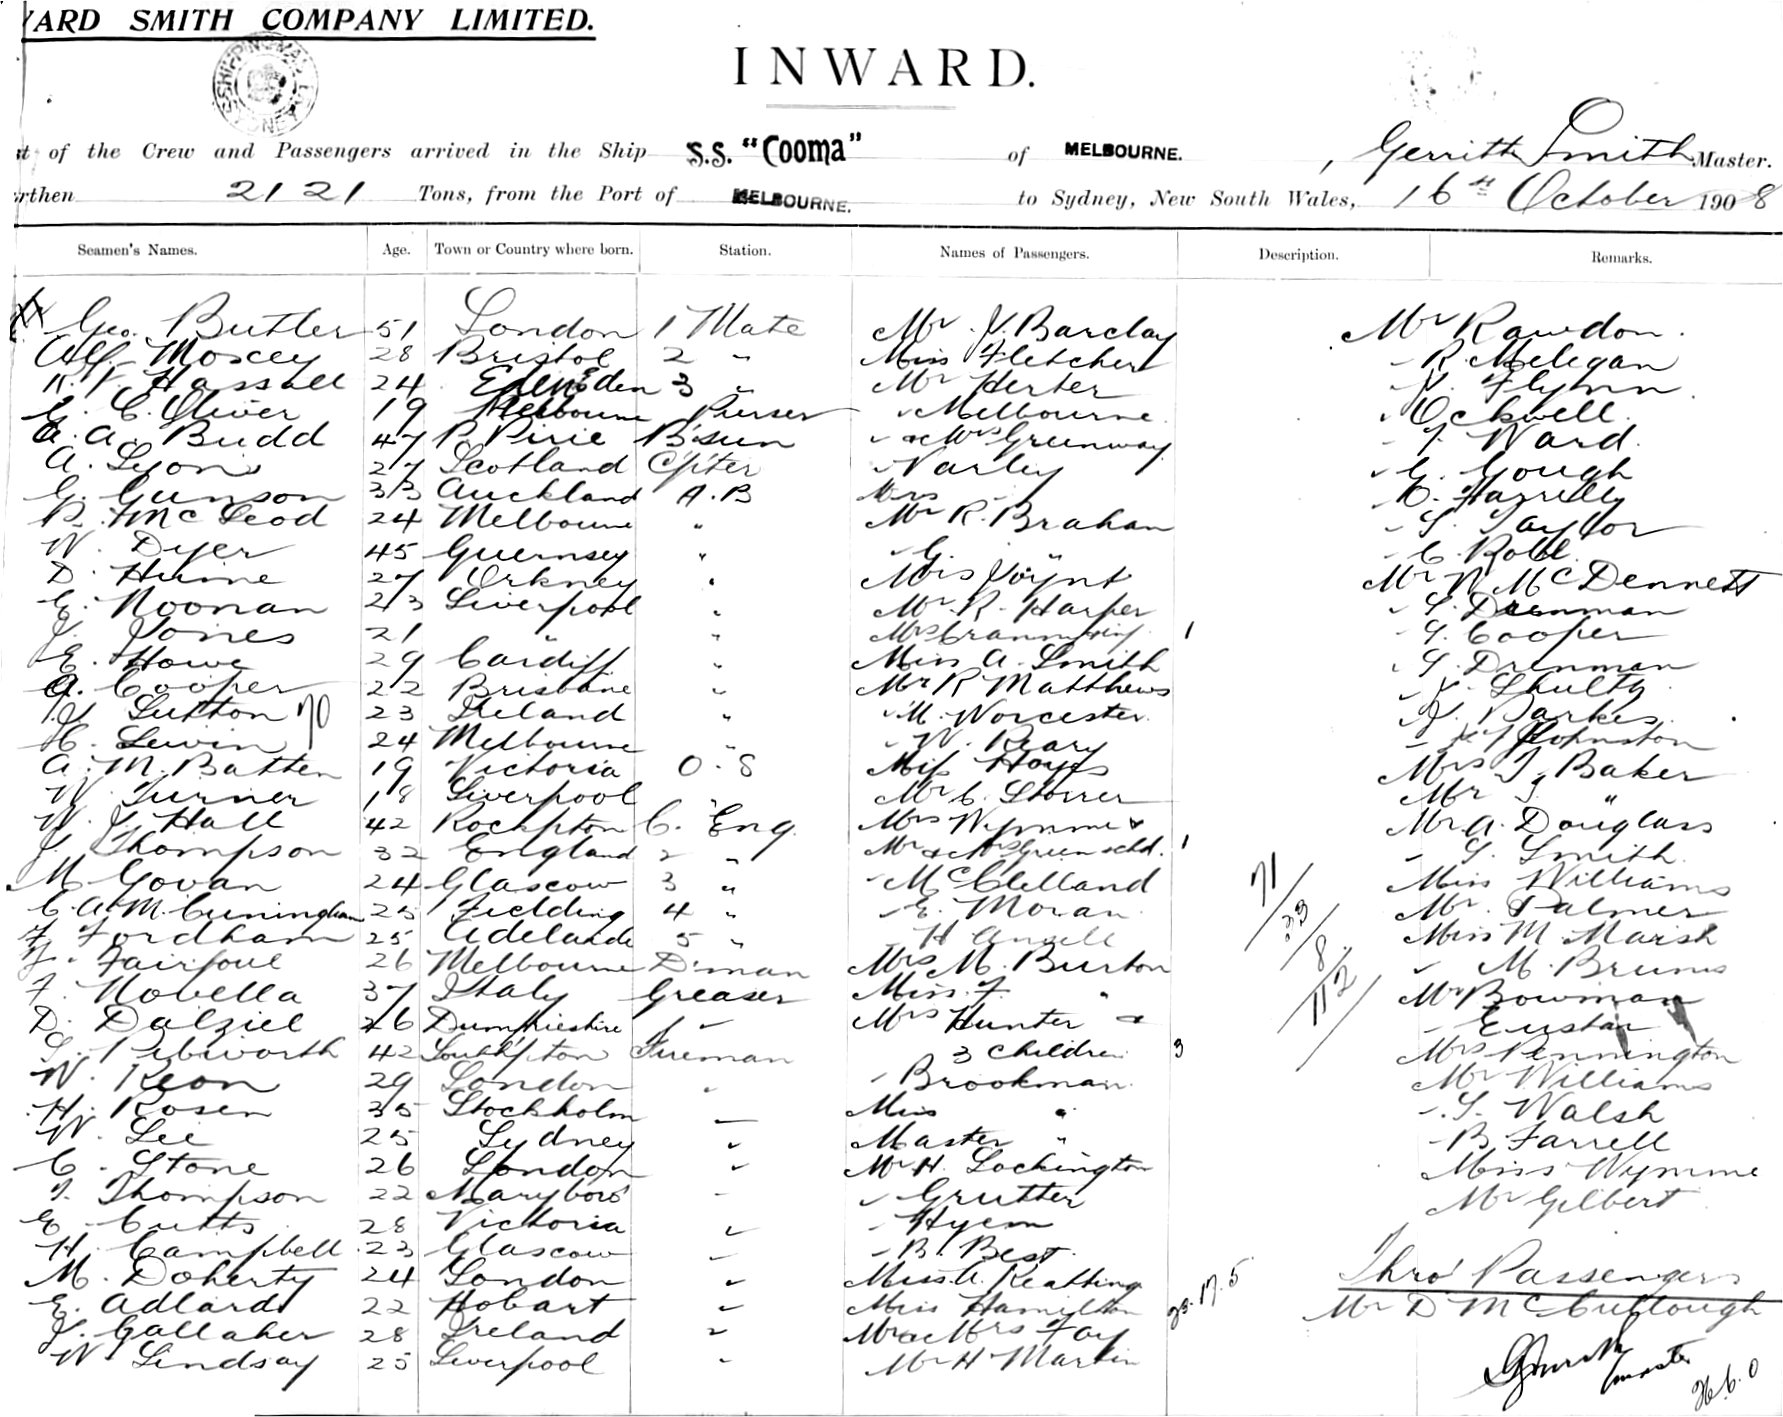 ARD SMITH COMPANY LIMITED.
INWARD.
of the Crew and Passengers arrived in the Ship S.S. "Cooma" of MELBOURNE. , Gerritt Smith Master.
rthen 2121 Tons, from the Port of MELBOURNE. to Sydney, New South Wales, 16th October 1908
Seamen's Names. Age. Town or Country where born. Station. Names of Passengers. Description. Remarks.
Geo. Butler 51 London 1 Mate Mr J. Barclay Mr Rawdon.
Alf Moscey 28 Bristol 2 " Miss Fletcher " R. Melegan
Hassell 24 Eden 3 " Mr Herter " Flynn
G. C. Oliver 19 Melbourne Purser " Melbourne " Ockwell.
A. Budd 47 P. Pirie B'sun " & Mrs Greenway " Ward.
A. Lyons 27 Scotland C'p'ter " Varley " G. Gough
G. Gunson 33 Auckland A.B Mrs "
McLeod 24 Melbourne " Mr R. Braham " Taylor
W. Dyer 45 Guernsey " " G. " " C.
D. Hume 27 Orkney " Mr N McDennett
E. Noonan 23 Liverpool " Mr R. Harper " Drenman
J. Jones 21 " " Mrs 1 " G. Cooper
E. Howe 29 Cardiff " Miss A. Smith " Drenman
A. Cooper 22 Brisbane " Mr R Matthews "
J. Sutton 23 Ireland " " M. Worcester. " J. Parkes.
H. Lewin 24 Melbourne " " W. Reary " Johnston
A. M. Batten 19 Victoria O.S Miss Hayes Mrs J. Baker
W. Turner 18 Liverpool " Mr C. Storrer Mr J. "
W. J. Hall 42 Rockpton C. Eng. Mrs Wymme & Mr A. Douglass
J. Thompson 32 England 2 " Mr & Mrs Green & chd. 1 " Smith.
M Govan 24 Glascow 3 " " McClelland 71 Miss Williams
C. A. M. Cuningham 25 Fielding 4 " " E. Moran 33 Mr. Palmer
F. Fordham 25 Adelaide 5 " " H Ansell Miss M. Marsh
Fairfoul 26 Melbourne D'man Mrs M. Burton 8 " M. Bruns
F. Novella 37 Italy Greaser Miss F. " 112 Mr Bowman
D. Dalziel 26 Dumfrieshire " Mrs Hunter & "
Pibworth 42 South'pton Fireman 3 Children 3 Mrs Pennington
W. Keon 29 London " " Brookman. Mr Williams
H. Rosen 35 Stockholm " Miss " " Walsh
W. Lee 25 Sydney " Master " " B. Farrell
C. Stone 26 London " Mr H. Lockington Miss Wymme
Thompson 22 Maryboro' " " Grutter Mr Gilbert
E. Cutts 28 Victoria " " Hyem
H. Campbell 23 Glascow " " B. Best.
M. Doherty 24 London " Miss A. Keatting Thro' Passengers
E. Adlard 22 Hobart " Miss Hamilton 23.17.5 Mr D McCullough
J. Gallaher 28 Ireland " Mr & Mrs Fay
W Lindsay 25 Liverpool " Mr H Martin master